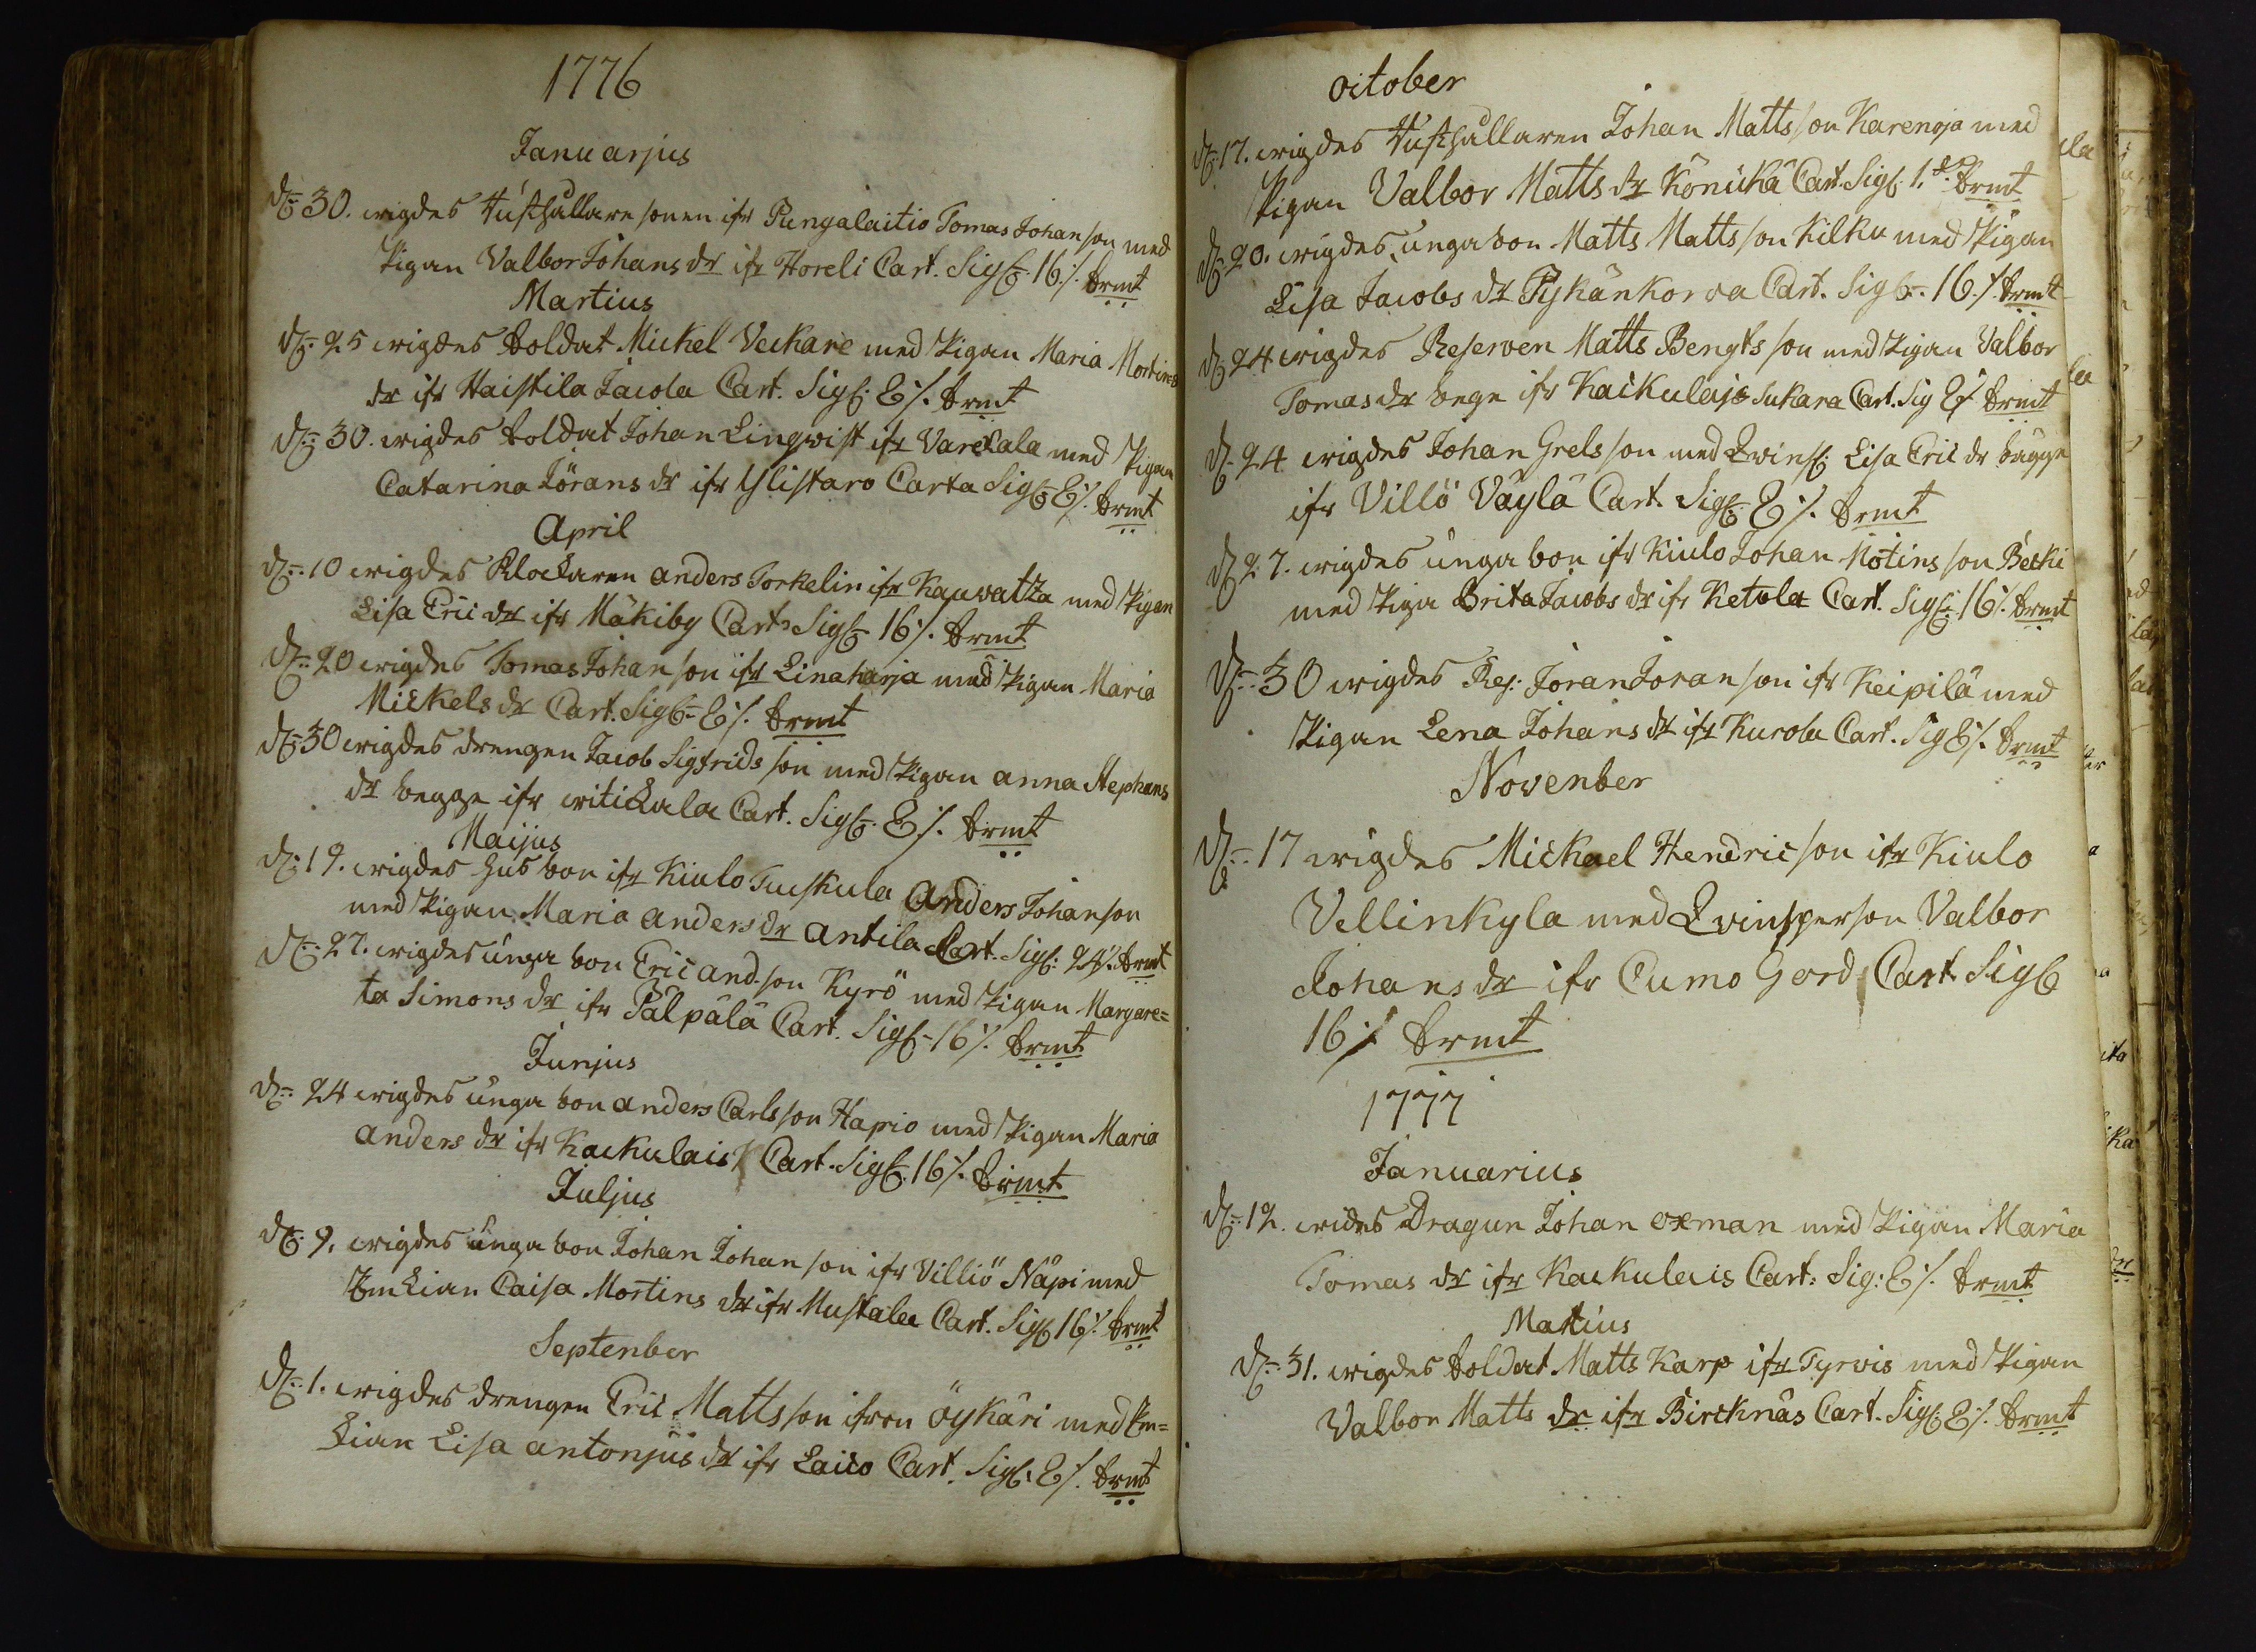 1776
Januarjus
dn 30. wigdes Rusthållare sonen ifr Pungalaitio Tomas Johan son med
Pigan Valbor Johans dr ifr Horeli Cart. Sigl: 16 ./. Srmt
Martius
dn 25 wigdes Soldat Mickel Veckare med Pigan Maria Mortins
dr ifr Haistila Jacola Cart. Sigl: 8 ./. Srmt
dn 30. wigdes Soldat Johan Linqwist ifr Varckala med Pigan
Catarina Jörans dr ifr Ylistaro Carta Sigl: 8 ./. Srmt
April
dn 10 wigdes Klockaren anders Torkelin ifr Kauvatza med Pigan
Lisa Eric dr ifr Mäkiby Cart. Sigl: 16 ./. Srmt
dn 20 wigdes Tomas Johan son ifr Linaharja med Pigan Maria
Mickels dr Cart. Sigl: 8 ./. Srmt
dn 30 wigdes drengen Jacob Sigfrids son med Pigan anna Stephans
dr begge ifr witickala Cart. Sigl: 8 ./. Srmt
Maijus
dn 19. wigdes Hus bon ifr Kiulo Tuiskula Anders Johan son
med Pigan Maria anders dr antila Cart. Sigl: 24 ./. Srmt
dn 27. wigdes unga bon Eric and. son Kyrö med Pigan Margare=
ta Simons dr ifr Pälpälä Cart. Sigl: 16 ./. Srmt
Junjus
dn 24 wigdes unga bon anders Carls son Hapio med Pigan Maria
anders dr ifr Kackulais Cart. Sigl: 16 ./. Srmt
Juljus
dn 9. wigdes unga bon Johan Johan son ifr Villiö Näpi med
Enckian Caisa Mortins dr ifr Mustalee Cart. Sigl 16 ./. Srmt
Septenber
dn 1. wigdes drengen Eric Matts son ifron öykäri med En=
kian Lisa antonjus dr ifr Laico Cart. Sigl: 8 ./. Srmt
October
dn 17. wigdes Rusthållaren Johan Matts son Karenoja med
Pigan Valbor Matts dr Könickä Cart. Sigl: 1. Srmt
dn 20. wigdes unga bon Matts Matts son Kilku med Pigan
Lisa Jacobs dr Pykänkorva Cart. Sigl: 16 ./. Srmt
dn 24 wigdes Reserven Matts Bengts son med Pigan Valbor
Tomas dr bege ifr Kackulajs Sukara Cart. Sig 8 ./. Srmt
dn 24 wigdes Johan Grels son med Qvinsp: Lisa Eric dr bägge
ifr Villö Väylä Cart. Sigl: 8 ./. Srmt
dn 27. wigdes unga bon ifr Kiulo Johan Motins son Becki
med Piga Brita Jacobs dr ifr Ketola Cart. Sigl: 16 ./. Srmt
dn 30 wigdes Res: Joran Joran son ifr Keipilä med
Pigan Lena Johans dr ifr Kurola Cart. Sig 8 ./. Srmt
Novenber
dn 17 wigdes Mickael Hendric son ifr Kiulo
Vellinkyla med Qvinsperson Valbor
Johans dr ifr Cumo Gord Cart. Sigl
16 ./. Srmt
1777
Januarius
dn 12. wides Dragun Johan oxman med Pigan Maria
Tomas dr ifr Kackulais Cart: Sig: 8 ./. Srmt
Martius
dn 31. wigdes Soldat Matts Karp ifr Tyrvis med Pigan
Valbor Matts dr ifr Bircknäs Cart. Sigl: 8 ./. Srmt